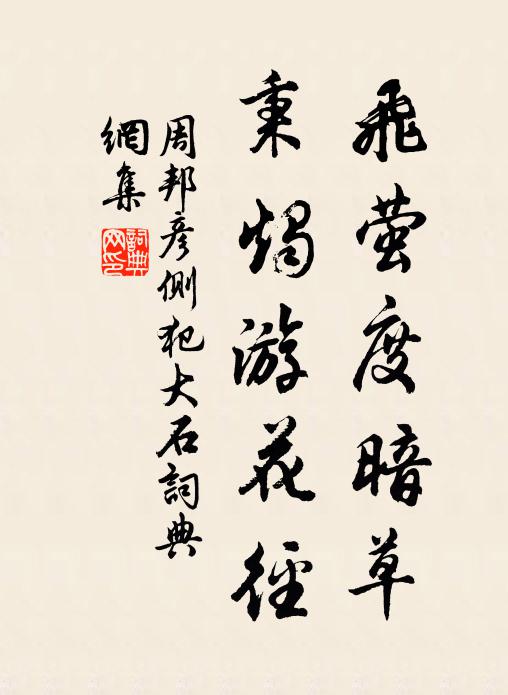 飛萤度暗草
秉燭游花徑
周邦彦側犯大石詞典
網集
詞典
网印